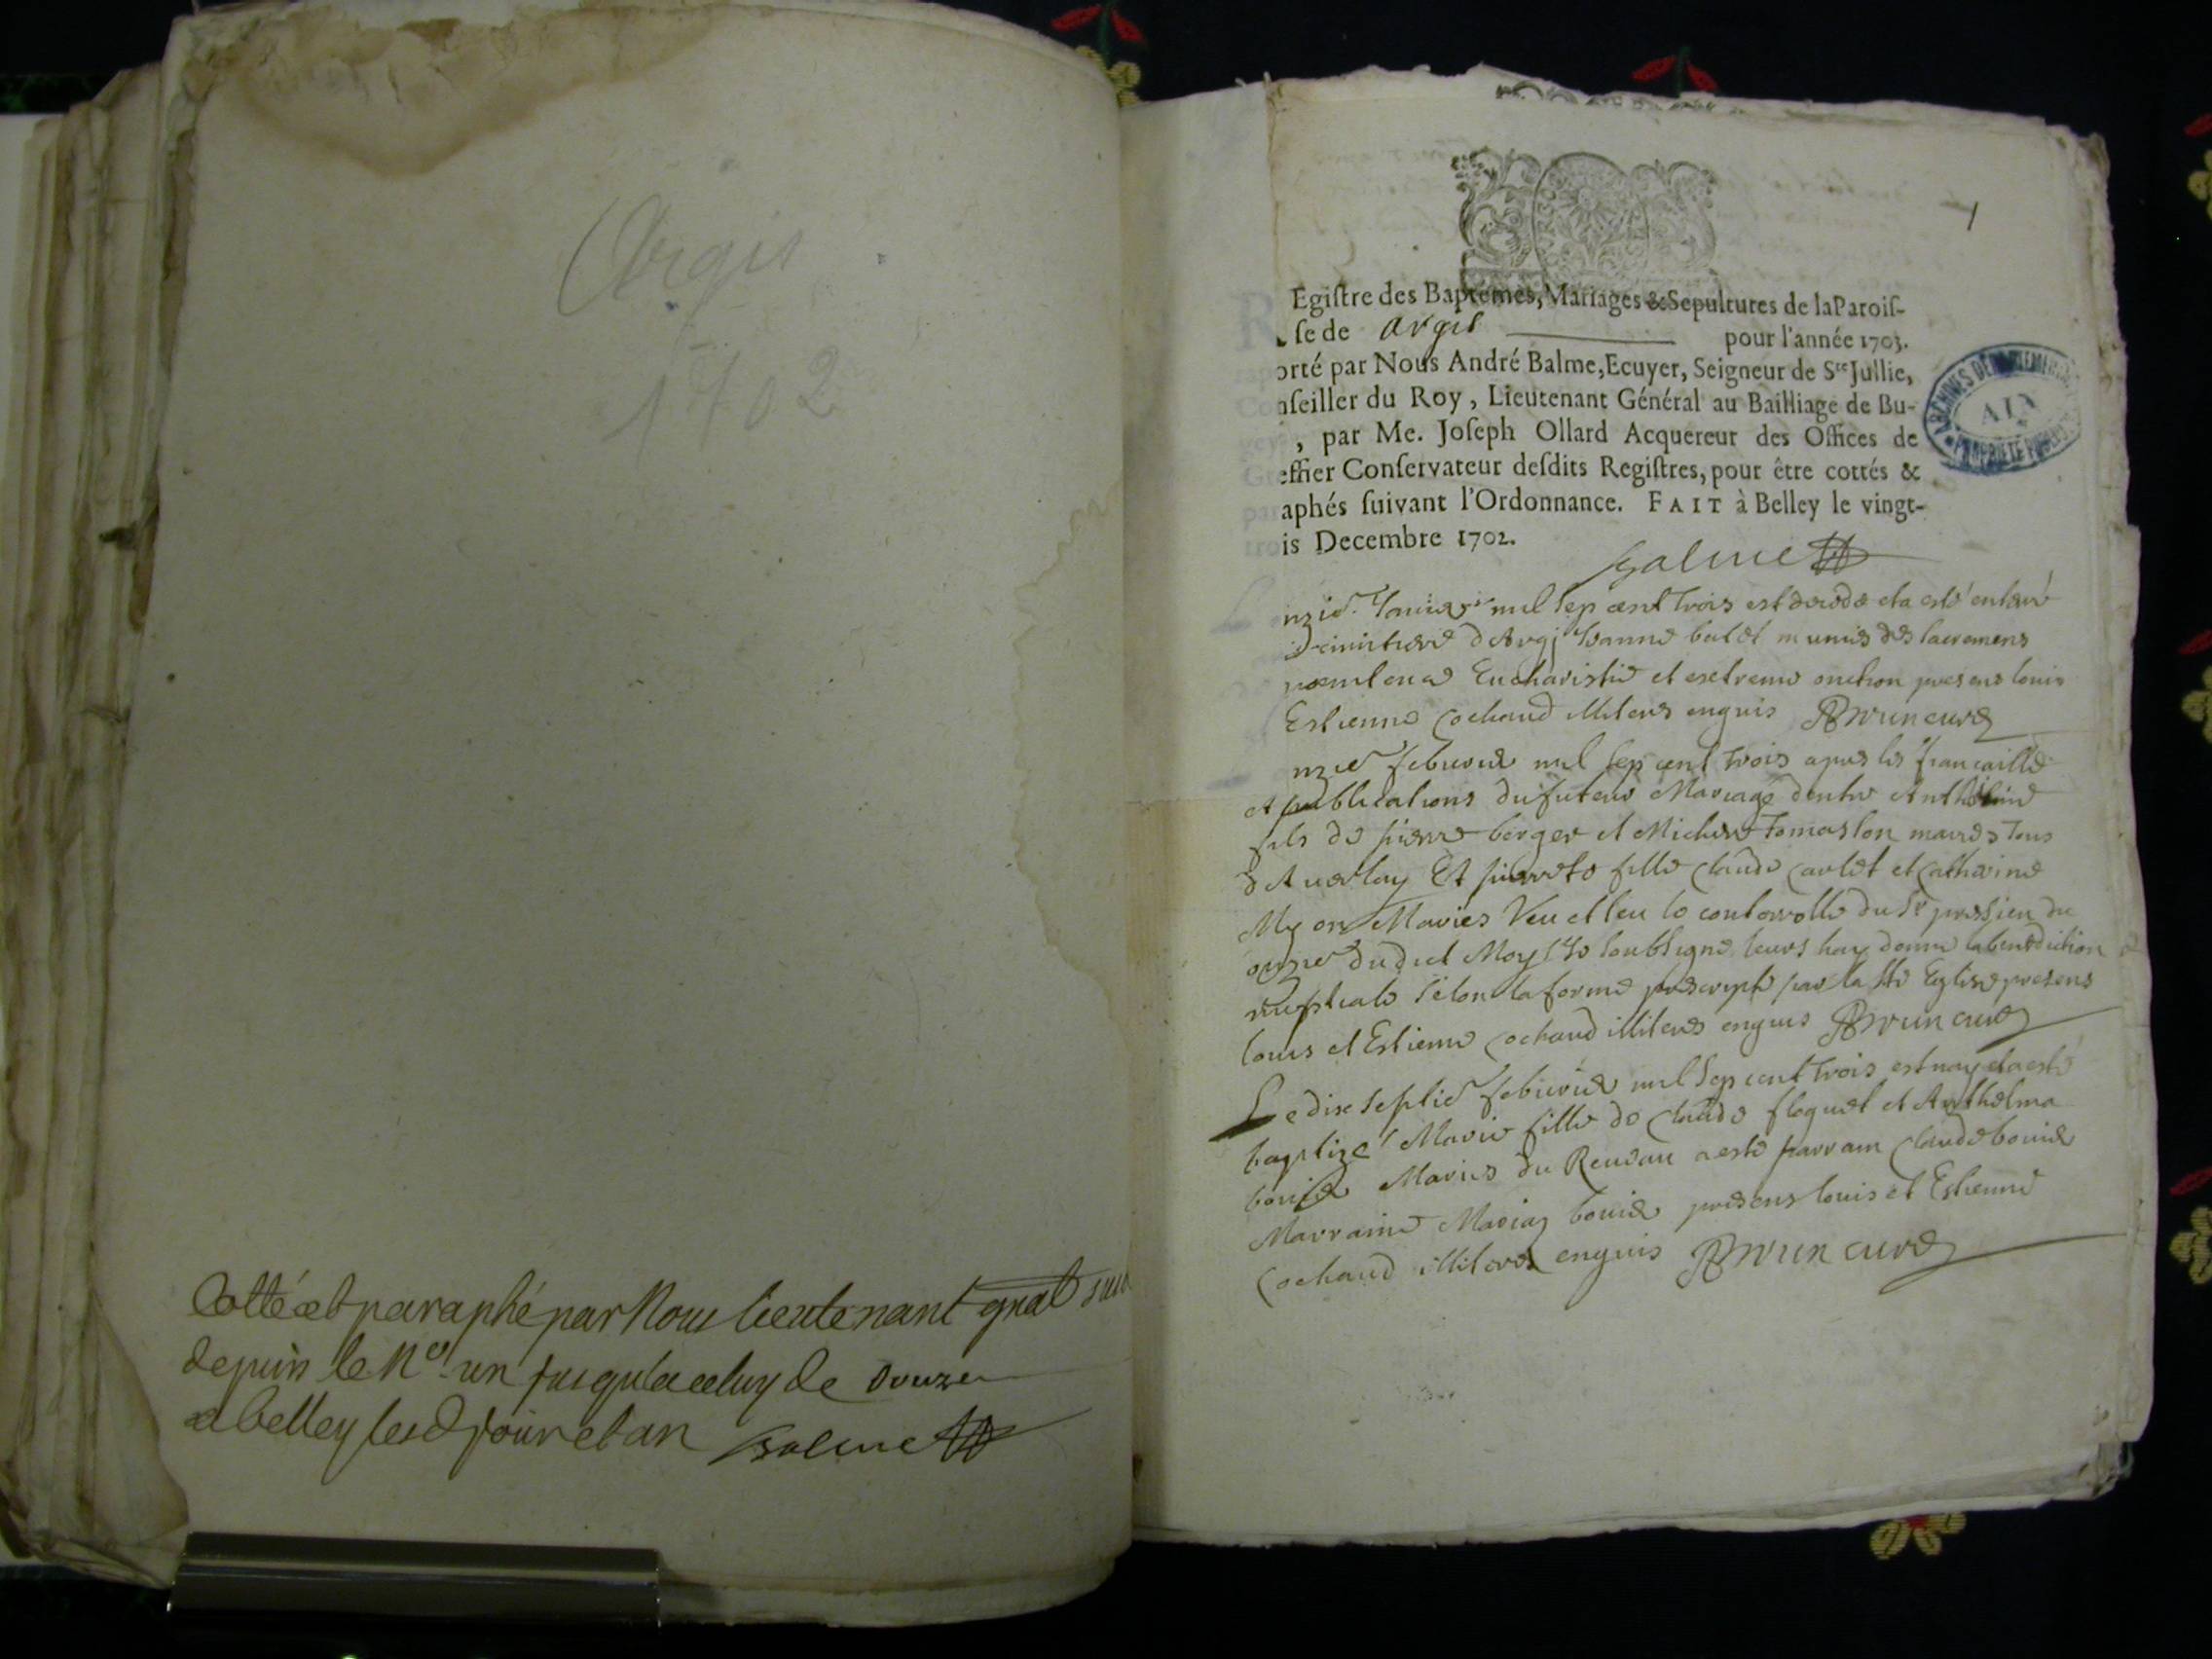 Argis
1702
Cotté et paraphé par Nous lieutenant gnal
depuis le No un jusqu'a celuy de Douze
a belley lesd jour et an Balme
1
Egiſtre des Baptêmes, Mariages & Sepultures de la Paroiſ-
ſe de Argis pour l'année 1703.
orté par Nous André Balme, Ecuyer, Seigneur de Ste Jullie,
nſeiller du Roy, Lieutenant Général au Bailliage de Bu-
, par Me. Joſeph Ollard Acquereur des Offices de
effier Conſervateur deſdits Regiſtres, pour être cottés &
aphés ſuivant l'Ordonnance. FAIT à Belley le vingt-
is Decembre 1702.
Balme
ARCHIVES DEPARTEMENTALES
AIN
PROPRIETE PUBLIQUE
nzie Janvier mil sept cent trois est decede et a esté enterré
cimitiere d'Argi munis des sacremens
penitence Eucharistie et extreme onction presens louis
Estienne Cochand illiteres enquis Brun curé
nzie febvrier mil sept cent trois apres les fiancailles
et publications du futeur Mariage d'entre Anthelme
fils de pierre berger et Tomasson mariés tous
Et pierrete fille Claude Carlet et Catherine
Myon Mariés Veu et leu le controolle du Sr
onzie dudict Moys Je soubsigné leurs hay donné la benediction
nuptiale selon la forme prescripte par la Ste Eglise presens
louis et Estienne Cochand illiteres enquis Brun curé
Le dix septie febvrier mil sept cent trois est nay et a esté
baptizé Marie fille de Claude floquet et Anthelma
bouvier Mariés du Reveau a esté parrain Claude bouvier
Marraine bouvier presens louis et Estienne
Cochand illiteres enquis Brun curé